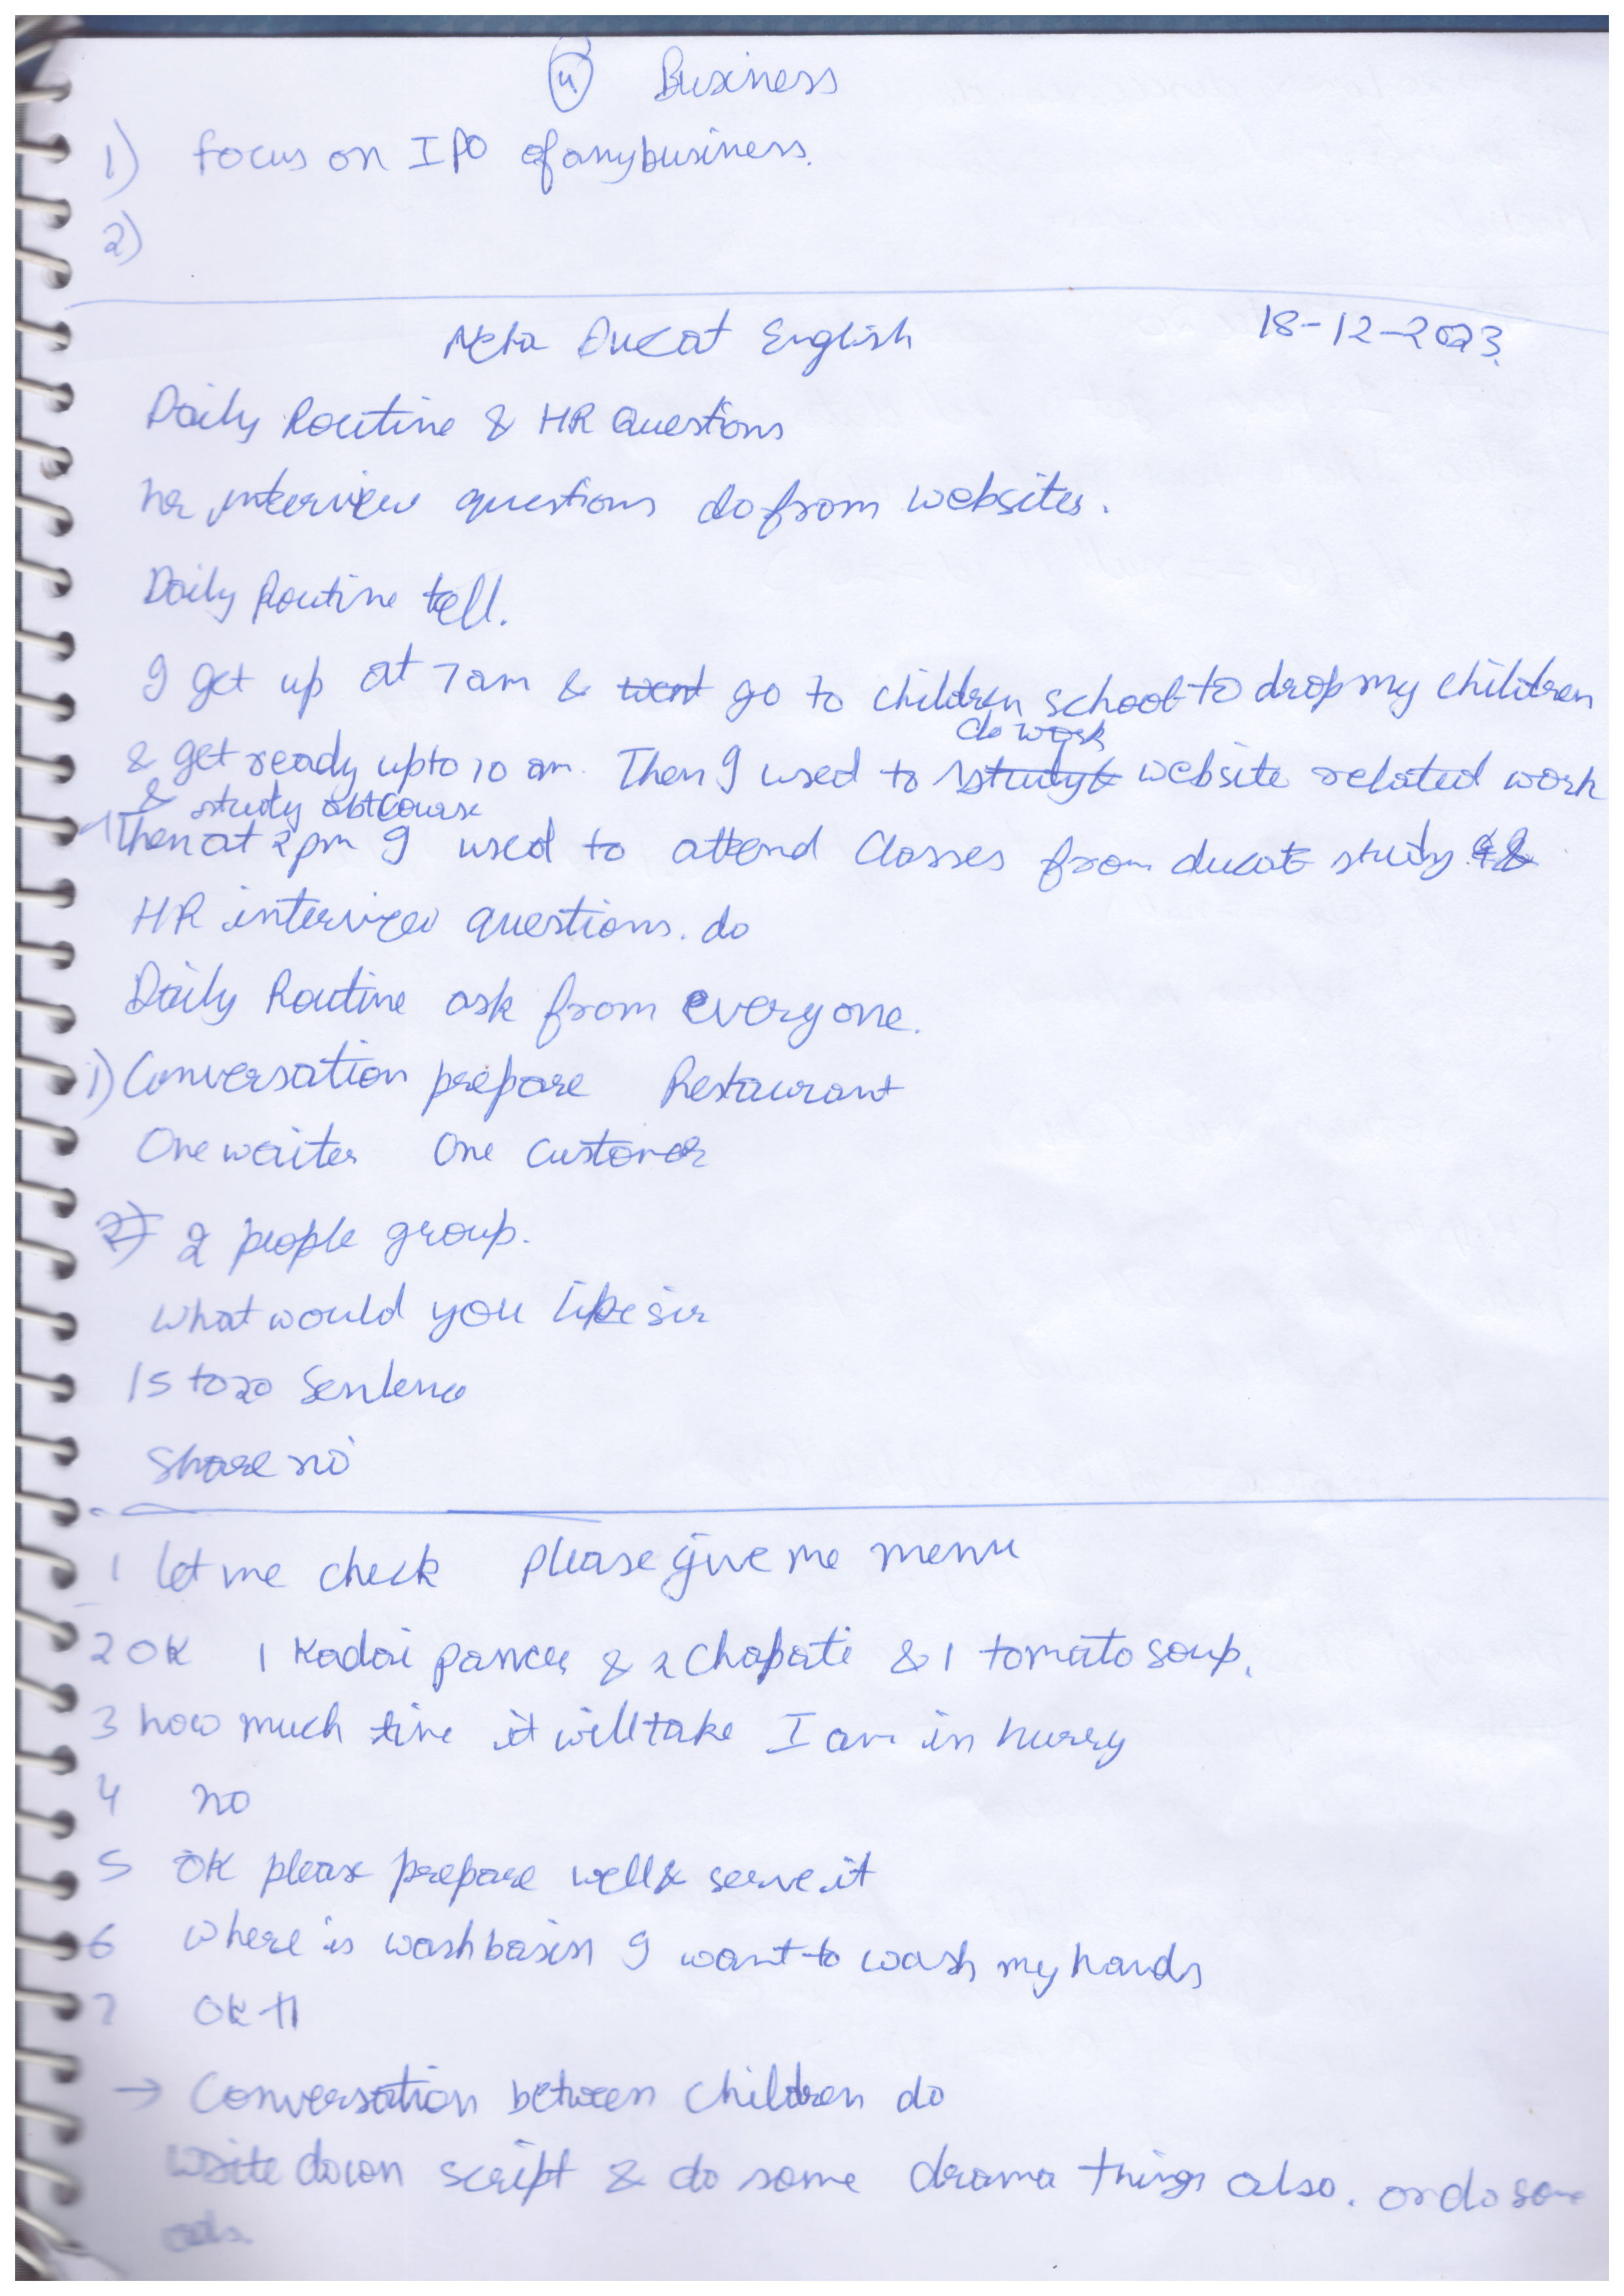 4 Business
1) focus on IPO of any business.
2)
Meta Ducat English 18-12-2023.
Daily Routine & HR Questions
hr interview questions do from websites.
Daily Routine tell.
I get up at 7am & went go to children school to drop my children
do work
& get ready upto 10 am. Then I used to study & website related work
& study course
Then at 2pm I used to attend Classes from ducat study &
HR interview questions. do
Daily Routine ask from everyone.
1) Conversation prepare Restaurant
One waiter One Customer
2) 2 people group.
What would you like sir
15 to 20 Sentence
Share no
1 let me check please give me menu
2 OK 1 Kadai paneer & 2 Chapati & 1 tomato soup.
3 how much time it will take I am in hurry
4 no
5 OK please prepare well & serve it
6 where is washbasin I want to wash my hands
7 OK
→ Conversation between children do
Write down script & do some drama things also. or do some
ads.